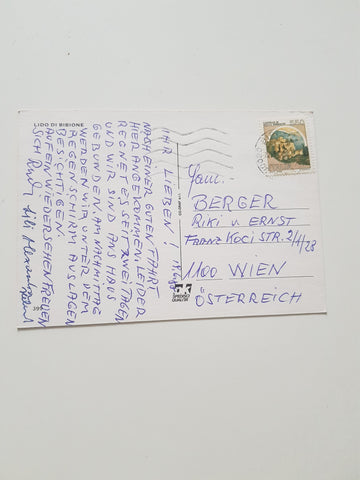 LIDO DI BIBIONE
IHR LIEBEN!
NACH EINER GUTEN FAHRT
HIER ANGEKOMMEN. LEIDER
REGNET ES SEIT ZWEI TAGEN
UND WIR SIND ANS HAUS
GEBUNDEN. AM NACHMITTAG
WERDEN WIR UNTER DEM
REGENSCHIRM AUSLAGEN
BESICHTIGEN.
AUF EIN WIEDERSEHEN FREUEN
SICH Rudi Lili
399
SPEDISCI
QUALITÀ
550
Fam.
BERGER
RIKI u ERNST
FRANZ KOCI STR. 2/4/28
1100 WIEN
ÖSTERREICH